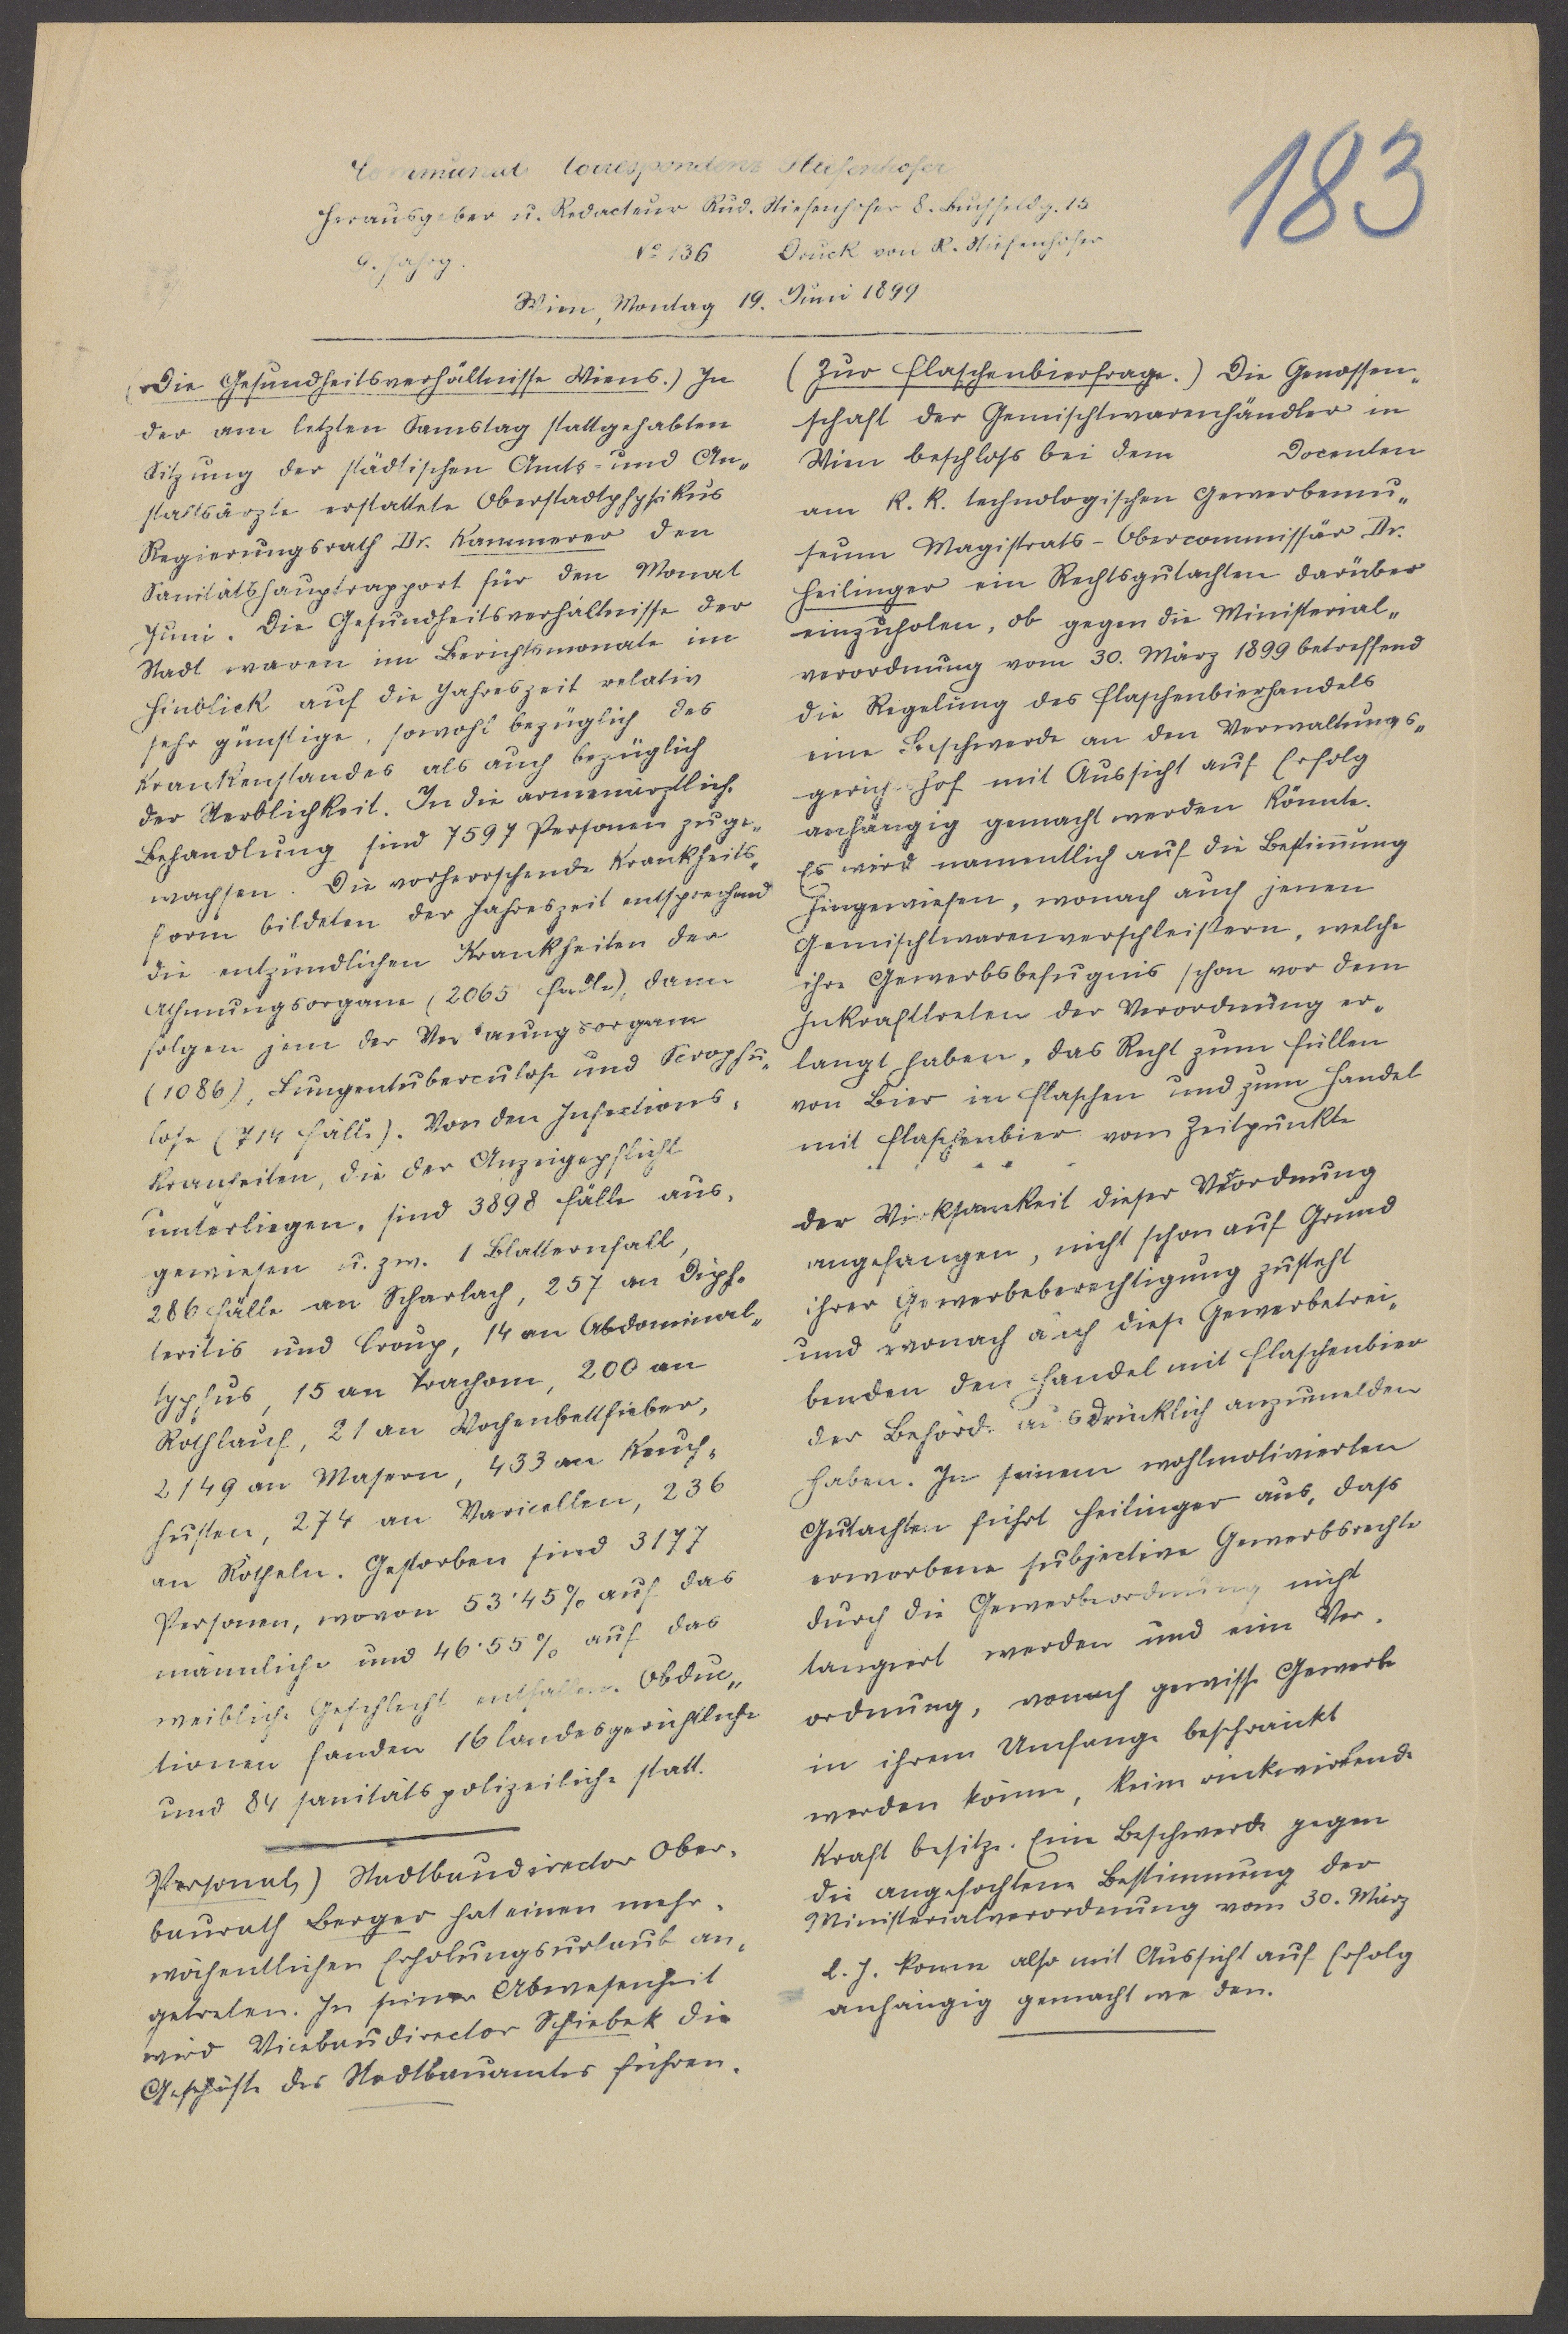 183
Communal Correspondenz Stiefenhofer
Herausgeber u. Redacteur Rud. Stiefenhofer 8. Buchfeldg. 15
9. Jahrg. No 136 Druck von R. Stiefenhofer
Wien, Montag 19. Juni 1899
(Die Gesundheitsverhältnisse Wiens.) In
der am letzten Samstag stattgehabten
Sitzung der städtischen Amts- und An„
staltsärzte erstattete Oberstadtphysikus
Regierungsrath Dr. Kammerer den
Sanitätshauptrapport für den Monat
Juni. Die Gesundheitsverhältnisse der
Stadt waren im Berichtsmonate im
Hinblick auf die Jahreszeit relativ
sehr günstige, sowohl bezüglich des
Krankenstandes als auch bezüglich
der Sterblichkeit. In die armenärztliche
Behandlung sind 7597 Personen zuge„
wachsen. Die vorherrschende Krankheits„
form bildeten der Jahreszeit entsprechend
die entzündlichen Krankheiten der
Athmungsorgane (2065 Fälle), dann
folgen jene der Verdauungsorgane
(1086), Lungentuberculose und Scrophu„
lose (714 Fälle). Von den Infections„
kranheiten, die der Anzeigepflicht
unterliegen, sind 3898 Fälle aus„
gewiesen u. zw. 1 Blatternfall,
286 Fälle an Scharlach, 257 an Diph„
teritis und Croup, 14 an Abdominal„
typhus, 15 an Trachom, 200 an
Rothlauf, 21 an Wochenbettfieber,
2149 an Masern, 433 an Keuch„
husten, 274 an Varicellen, 236
an Rötheln. Gestorben sind 3177
Personen, wovon 53·45% auf das
männliche und 46·55% auf das
weibliche Geschlecht entfallen. Obduc„
tionen fanden 16 landesgerichtliche
und 84 sanitätspolizeiliche statt.
Personal) Stadtbaudirector Ober„
baurath Berger hat einen mehr„
wöchentlichen Erholungsurlaub an„
getreten. In seiner Abwesenheit
wird Vicebaudirector Schiebek die
Geschäfte des Stadtbauamtes führen.
(Zur Flaschenbierfrage.) Die Genossen„
schaft der Gemischtwarenhändler in
Wien beschloss bei dem Docenten
am k. k. technologischen Gewerbemu„
seum Magistrats-Obercommissär Dr.
Heilinger ein Rechtsgutachten darüber
einzuholen, ob gegen die Ministerial„
verordnung vom 30. März 1899 betreffend
die Regelung des Flaschenbierhandels
eine Beschwerde an den Verwaltungs„
gerich hof mit Aussicht auf Erfolg
anhängig gemacht werden könnte.
Es wird namentlich auf die Bestim̄ung
hingewiesen, wonach auch jenen
Gemischtwarenverschleißern, welche
ihre Gewerbsbefugnis schon vor dem
Inkrafttreten der Verordnung er„
langt haben, das Recht zum Füllen
von Bier in Flaschen und zum Handel
mit Flaschenbier vom Zeitpunkte
der Wirksamkeit dieser Verordnung
angefangen, nicht schon auf Grund
ihrer Gewerbeberechtigung zusteht
und wonach auch diese Gewerbetrei„
benden den Handel mit Flaschenbier
der Behörde ausdrücklich anzumelden
haben. In seinem wohlmotivierten
Gutachten führt Heilinger aus, dass
erworbene subjective Gewerbsrechte
durch die Gewerbeordnung nicht
tangiert werden und eine Ver„
ordnung, wonach gewisse Gewerbe
in ihrem Umfange beschränkt
werden könne, keine rückwirkende
Kraft besitze. Eine Beschwerde gegen
die angefochtene Bestimmung der
Ministerialverordnung vom 30. März
l. J. könne also mit Aussicht auf Erfolg
anhängig gemacht we den.